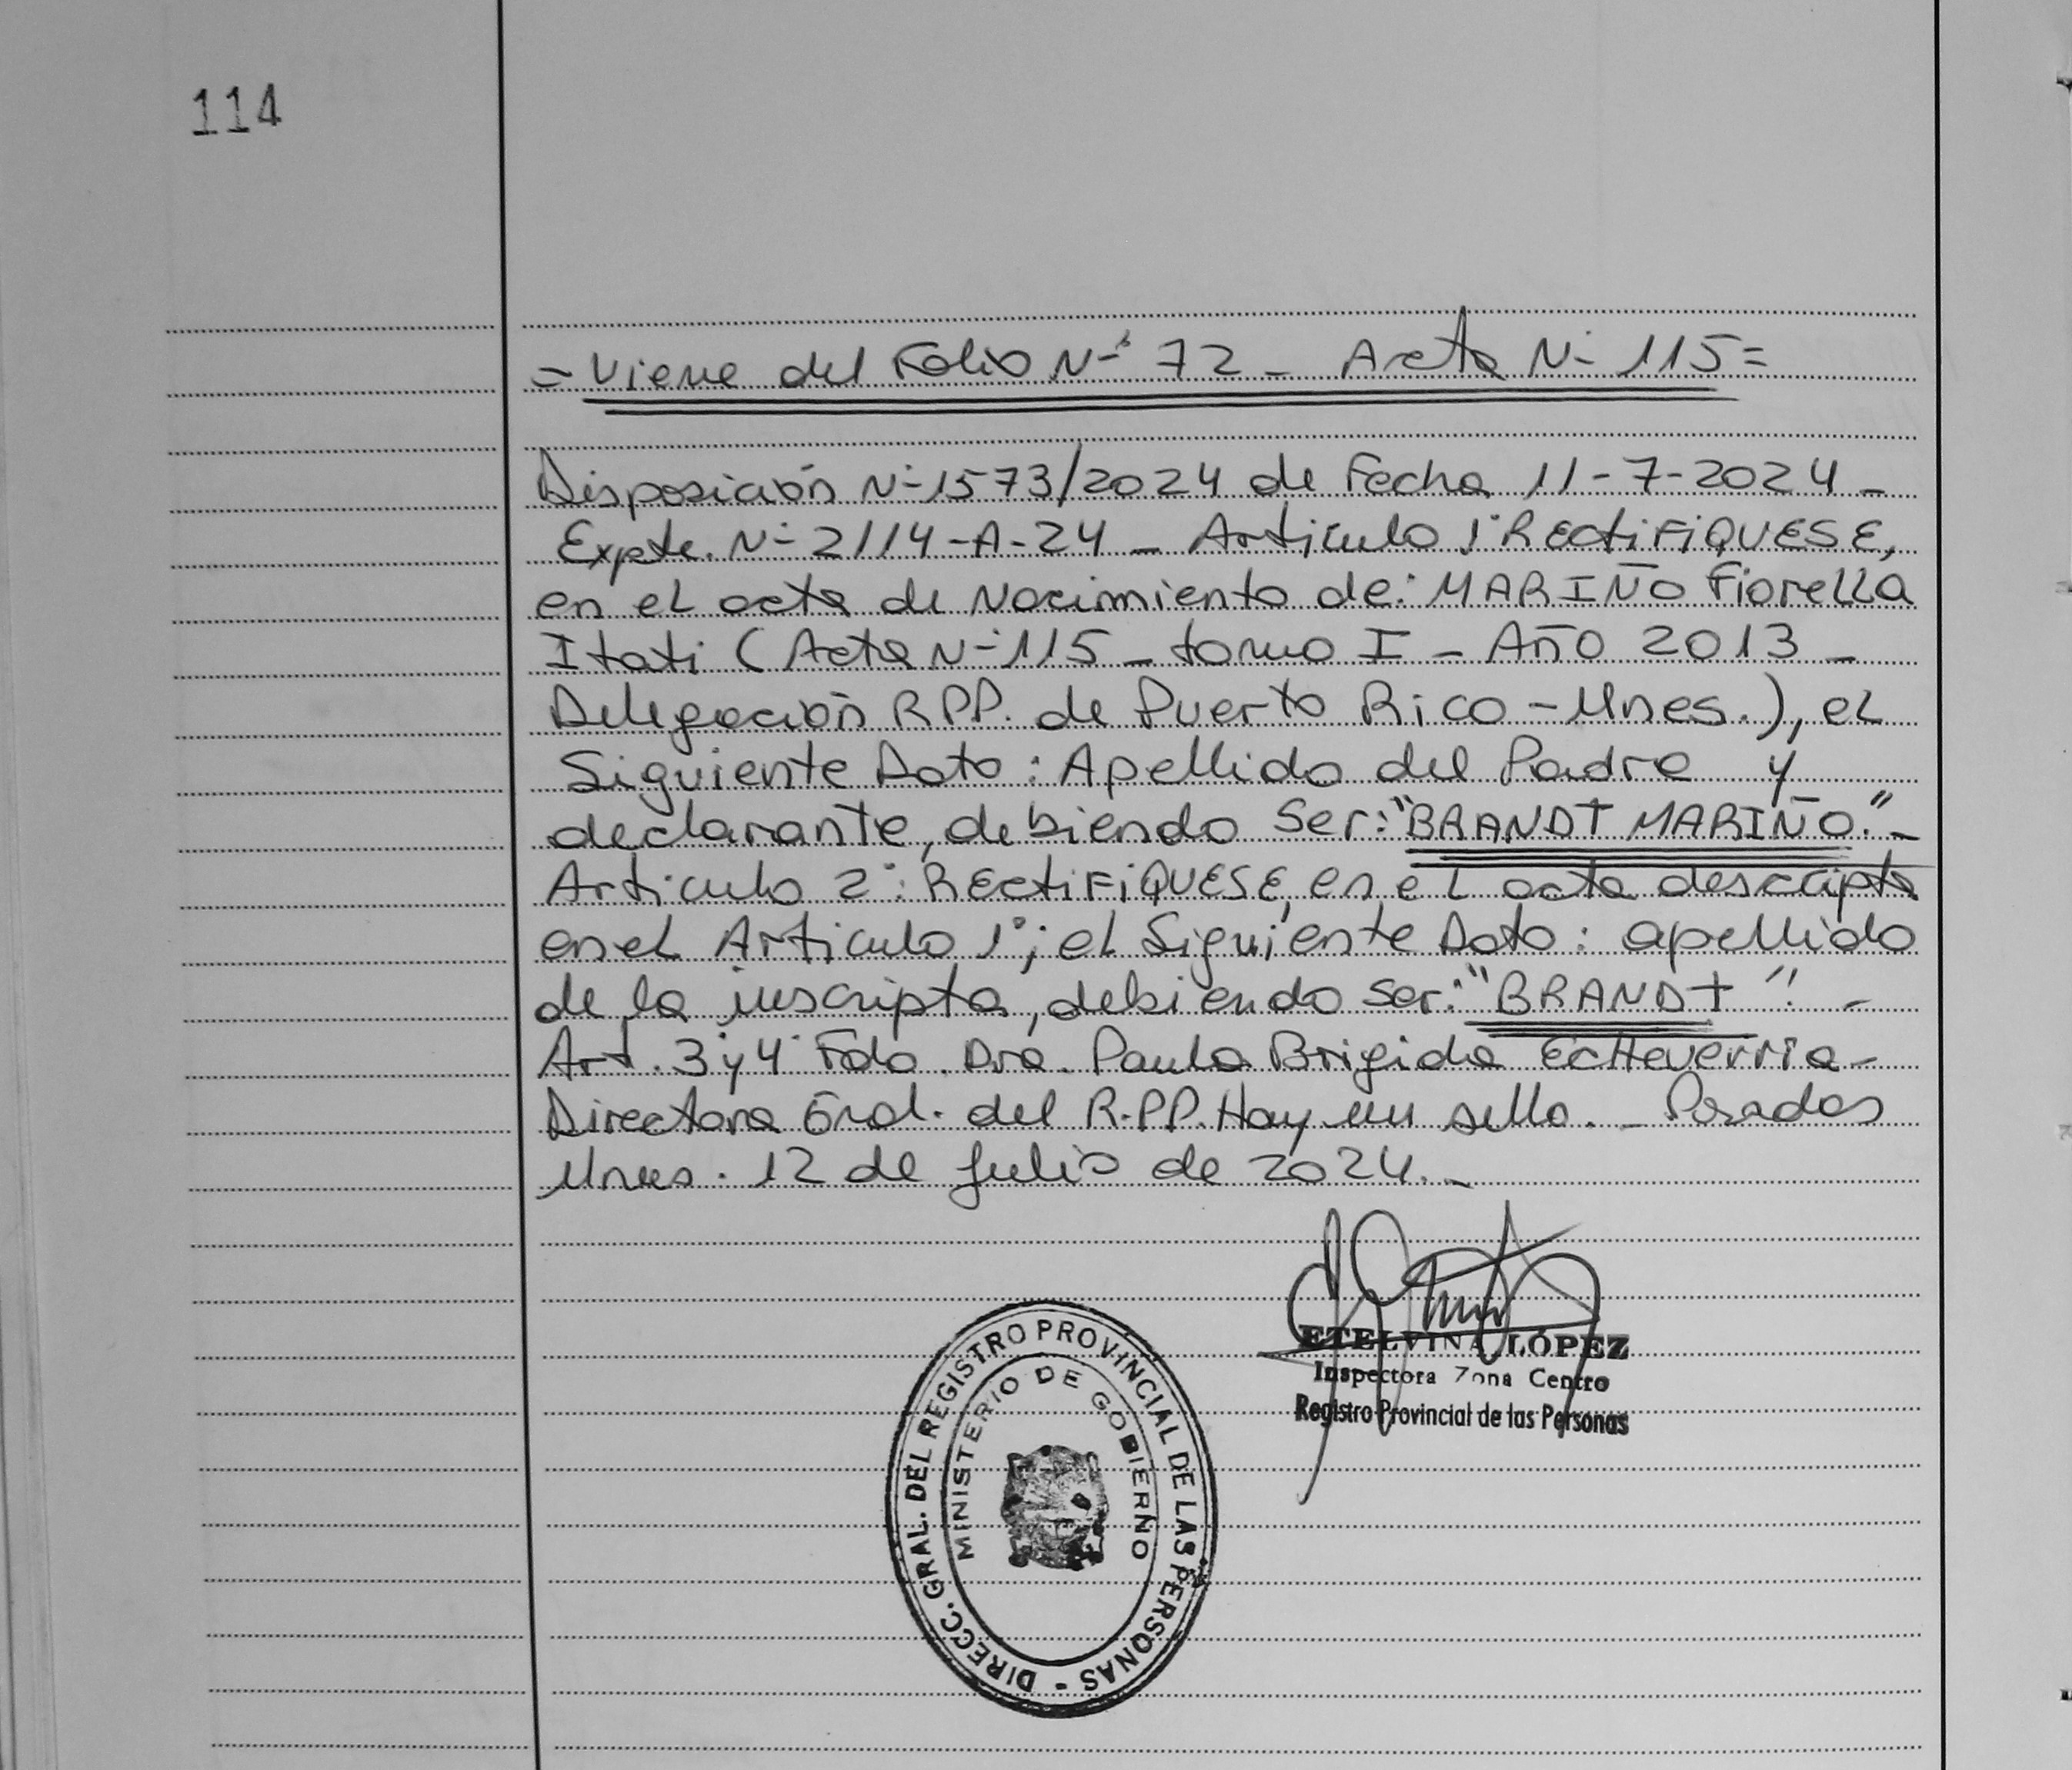 114
= Viene del Folio N° 72 - Acta N° 115 =
Disposición N° 1573/2024 de Fecha 11-7-2024 -
Expte. N° 2114-A-24 - Artículo 1° RECTIFIQUESE,
en el acta de Nacimiento de: MARIÑO Fiorella
Itati (Acta N° 115 - tomo I - Año 2013 -
Delegación RPP. de Puerto Rico - Mnes.), el
Siguiente Dato: Apellido del Padre y
declarante, debiendo ser: "BRANDT MARIÑO." -
Articulo 2°: RECTIFIQUESE, en el acta descripta
en el Articulo 1°; el Siguiente Dato: apellido
de la inscripta, debiendo ser: "BRANDT". -
Art. 3 y 4 Fdo. Dra. Paula Brigida Echeverria -
Directora Gral. del R.PP. Hay un sello. - Posadas
Mnes. 12 de Julio de 2024. -
ETELVINA LÓPEZ
Inspectora Zona Centro
Registro Provincial de las Personas
DIRECC. GRAL. DEL REGISTRO PROVINCIAL DE LAS PERSONAS -
MINISTERIO DE GOBIERNO